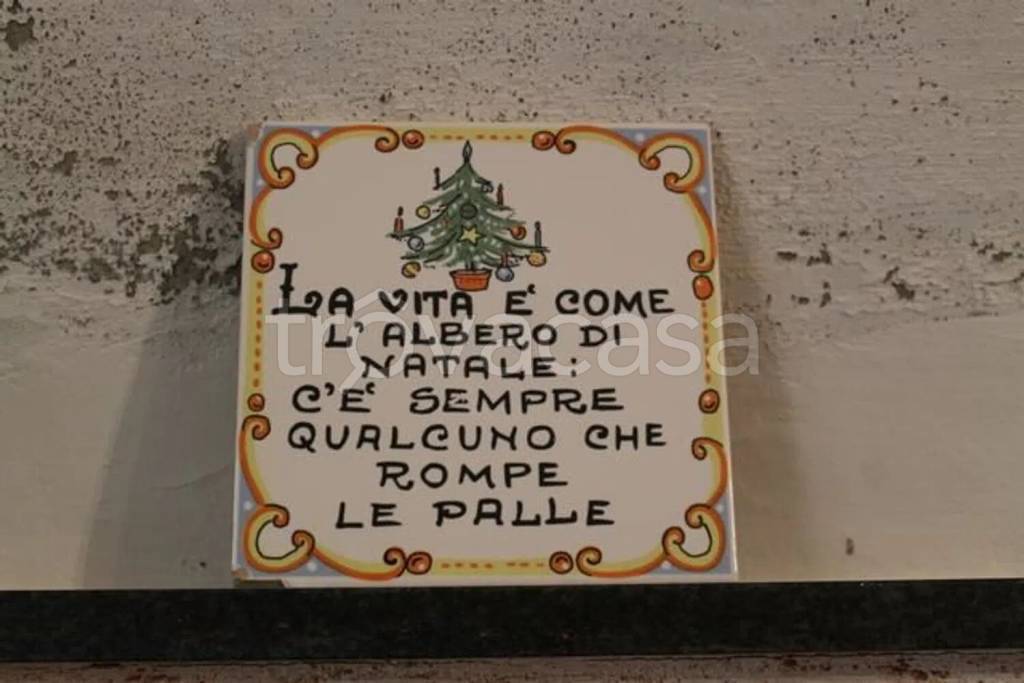 LA VITA E' COME
L'ALBERO DI
NATALE:
C'E' SEMPRE
QUALCUNO CHE
ROMPE
LE PALLE
trovacasa